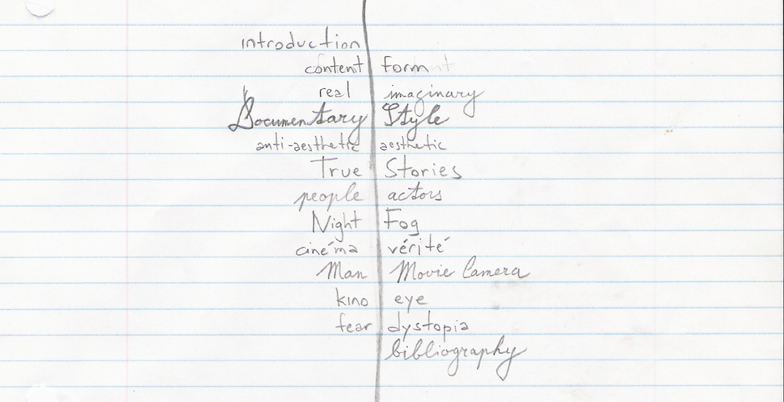 introduction
content form
real imaginary
Documentary Style
anti-aesthetic aesthetic
True Stories
people actors
Night Fog
cinéma vérité
Man Movie Camera
kino eye
fear dystopia
bibliography